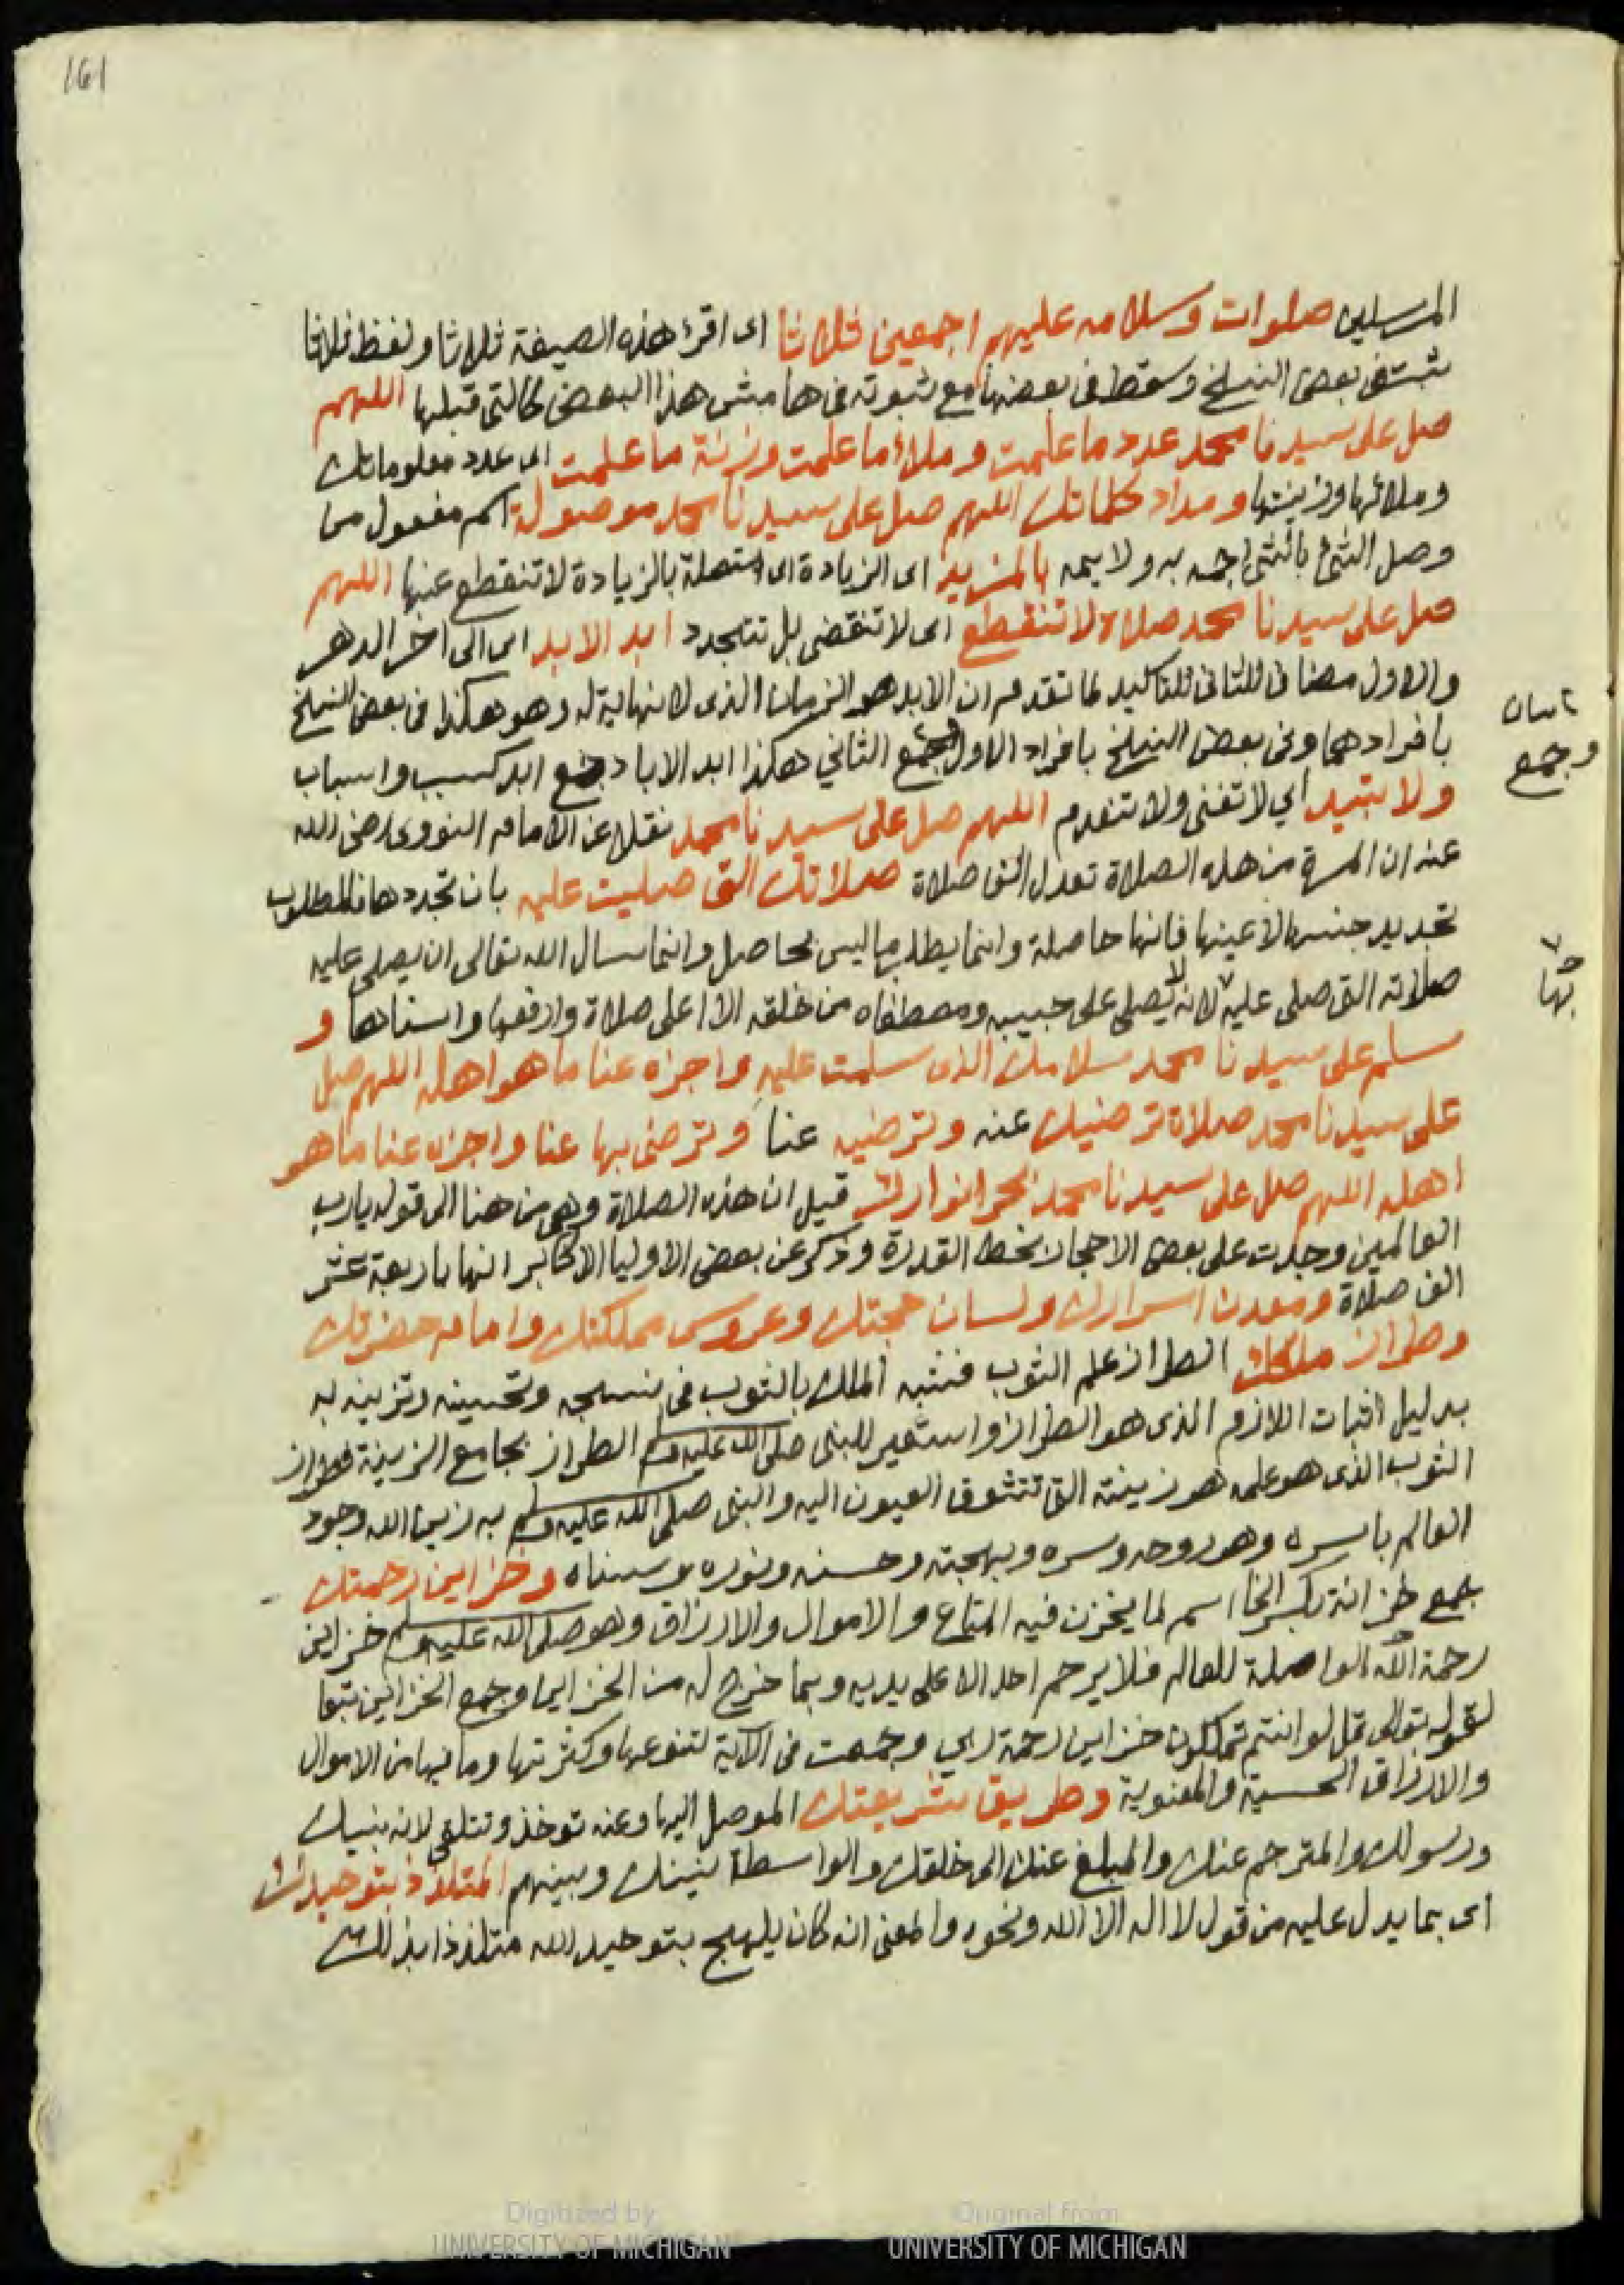 161
المرسلين صلوات وسلامه عليهم اجمعين ثلاثا اى اقرء هذه الصيغة ثلاثا ولفظ ثلاثا
ثبت فى بعض النسخ وسقط فى بعضها مع ثبوته فى هامش هذا البعض كالتى قبلها اللهم
صل على سيدنا محمد عدد ما علمت وملأ ما علمت وزنة ما علمت اى عدد معلوماتك
وملائها وزينتها ومداد كلماتك اللهم صل على سيدنا محمد موصولة اسم مفعول من
وصل الشئ بالشئ به ولايمه بالمزيد اى الزيادة اى متصلة بالزيادة لا تنقطع عنها اللهم
صل على سيدنا محمد صلاة لا تنقطع اى لا تنقضى بل تتجدد ابد الابد اى الى اخر الدهر
والاول مضاف للثانى للتاكيد لما تقدم ان الابد هو الزمان الذى لا نهاية له وهو هكذا فى بعض النسخ
بافرادهما وفى بعض النسخ بافراد الاول وجمع الثاني هكذا ابد الاباد جمع ابد كسبب واسباب
وجمع
ولا تبيد اي لا تفنى ولا تنعدم اللهم صل على سيدنا محمد نقل عن الامام النووى رضى الله
عنه ان المرة من هذه الصلاة تعدل الف صلاة صلاتك التى صليت عليه بان تجددها فالمطلوب
تجديد جنسها لا عينها فانها حاصلة وانما يطلب ما ليس بحاصل وانما سال الله تعالى ان يصلى عليه
صلاته التى صلى عليه لانه لا يصلى على حبيبه ومصطفاه من خلقه الا اعلى صلاة وارفعها واسناها و
بها
سلم على سيدنا محمد سلامك الذى سلمت عليه واجزه عنا ما هو اهله اللهم صل
على سيدنا محمد صلاة ترضيك عنه وترضيه عنا وترضى بها عنا واجزه عنا ما هو
اهله اللهم صل على سيدنا محمد بحر انوارك قيل ان هذه الصلاة وهى من هنا الى قوله يارب
العالمين وجدت على بعض الاحجار بخط القدرة وذكر عن بعض الاوليا الاكابر انها باربعة عشر
الف صلاة ومعدن اسرارك ولسان حجتك وعروس مملكتك وامام حضرتك
وطراز ملكك الطراز علم الثوب فشبه الملك بالثوب فى نسجه وتحسينه وتزيينه به
بدليل اثبات اللازم الذى هو الطراز واستعير للنبى صلى الله عليه وسلم الطراز بجامع الزينة فطراز
الثوب الذى هو علمه هو زينته التى تتشوق العيون اليه والنبى صلى الله عليه وسلم به زين الله وجود
العالم باسره وهو روحه وسره وبهجته وحسنه ونوره وسناه وخزاين رحمتك
جمع خزانة بكسر الخا اسم لما يخزن فيه المتاع والاموال والارزاق وهو صلى الله عليه وسلم خزاين
رحمة الله الواصلة للعالم فلا يرحم احد الا على يديه وبما خرج له من الخزاين وجمع الخزاين تبعا
لقوله تعالى قل لو انتم تملكون خزاين رحمة ربي وجمعت فى الآية لتنوعها وكثرتها وما فيها من الاموال
والارزاق الحسية والمعنوية وطريق شريعتك الموصل اليها وعنه توخذ وتتلقى لانه نبيك
ورسولك والمترجم عنك والمبلغ عنك الى خلقك والواسطة بينك وبينهم المتلذذ بتوحيدك
اى بما يدل عليه من قول لا اله الا الله ونحوه والمعنى انه كان يلهج بتوحيد الله متلذذا بذلك
Digitized by
UNIVERSITY OF MICHIGAN
Original from
UNIVERSITY OF MICHIGAN